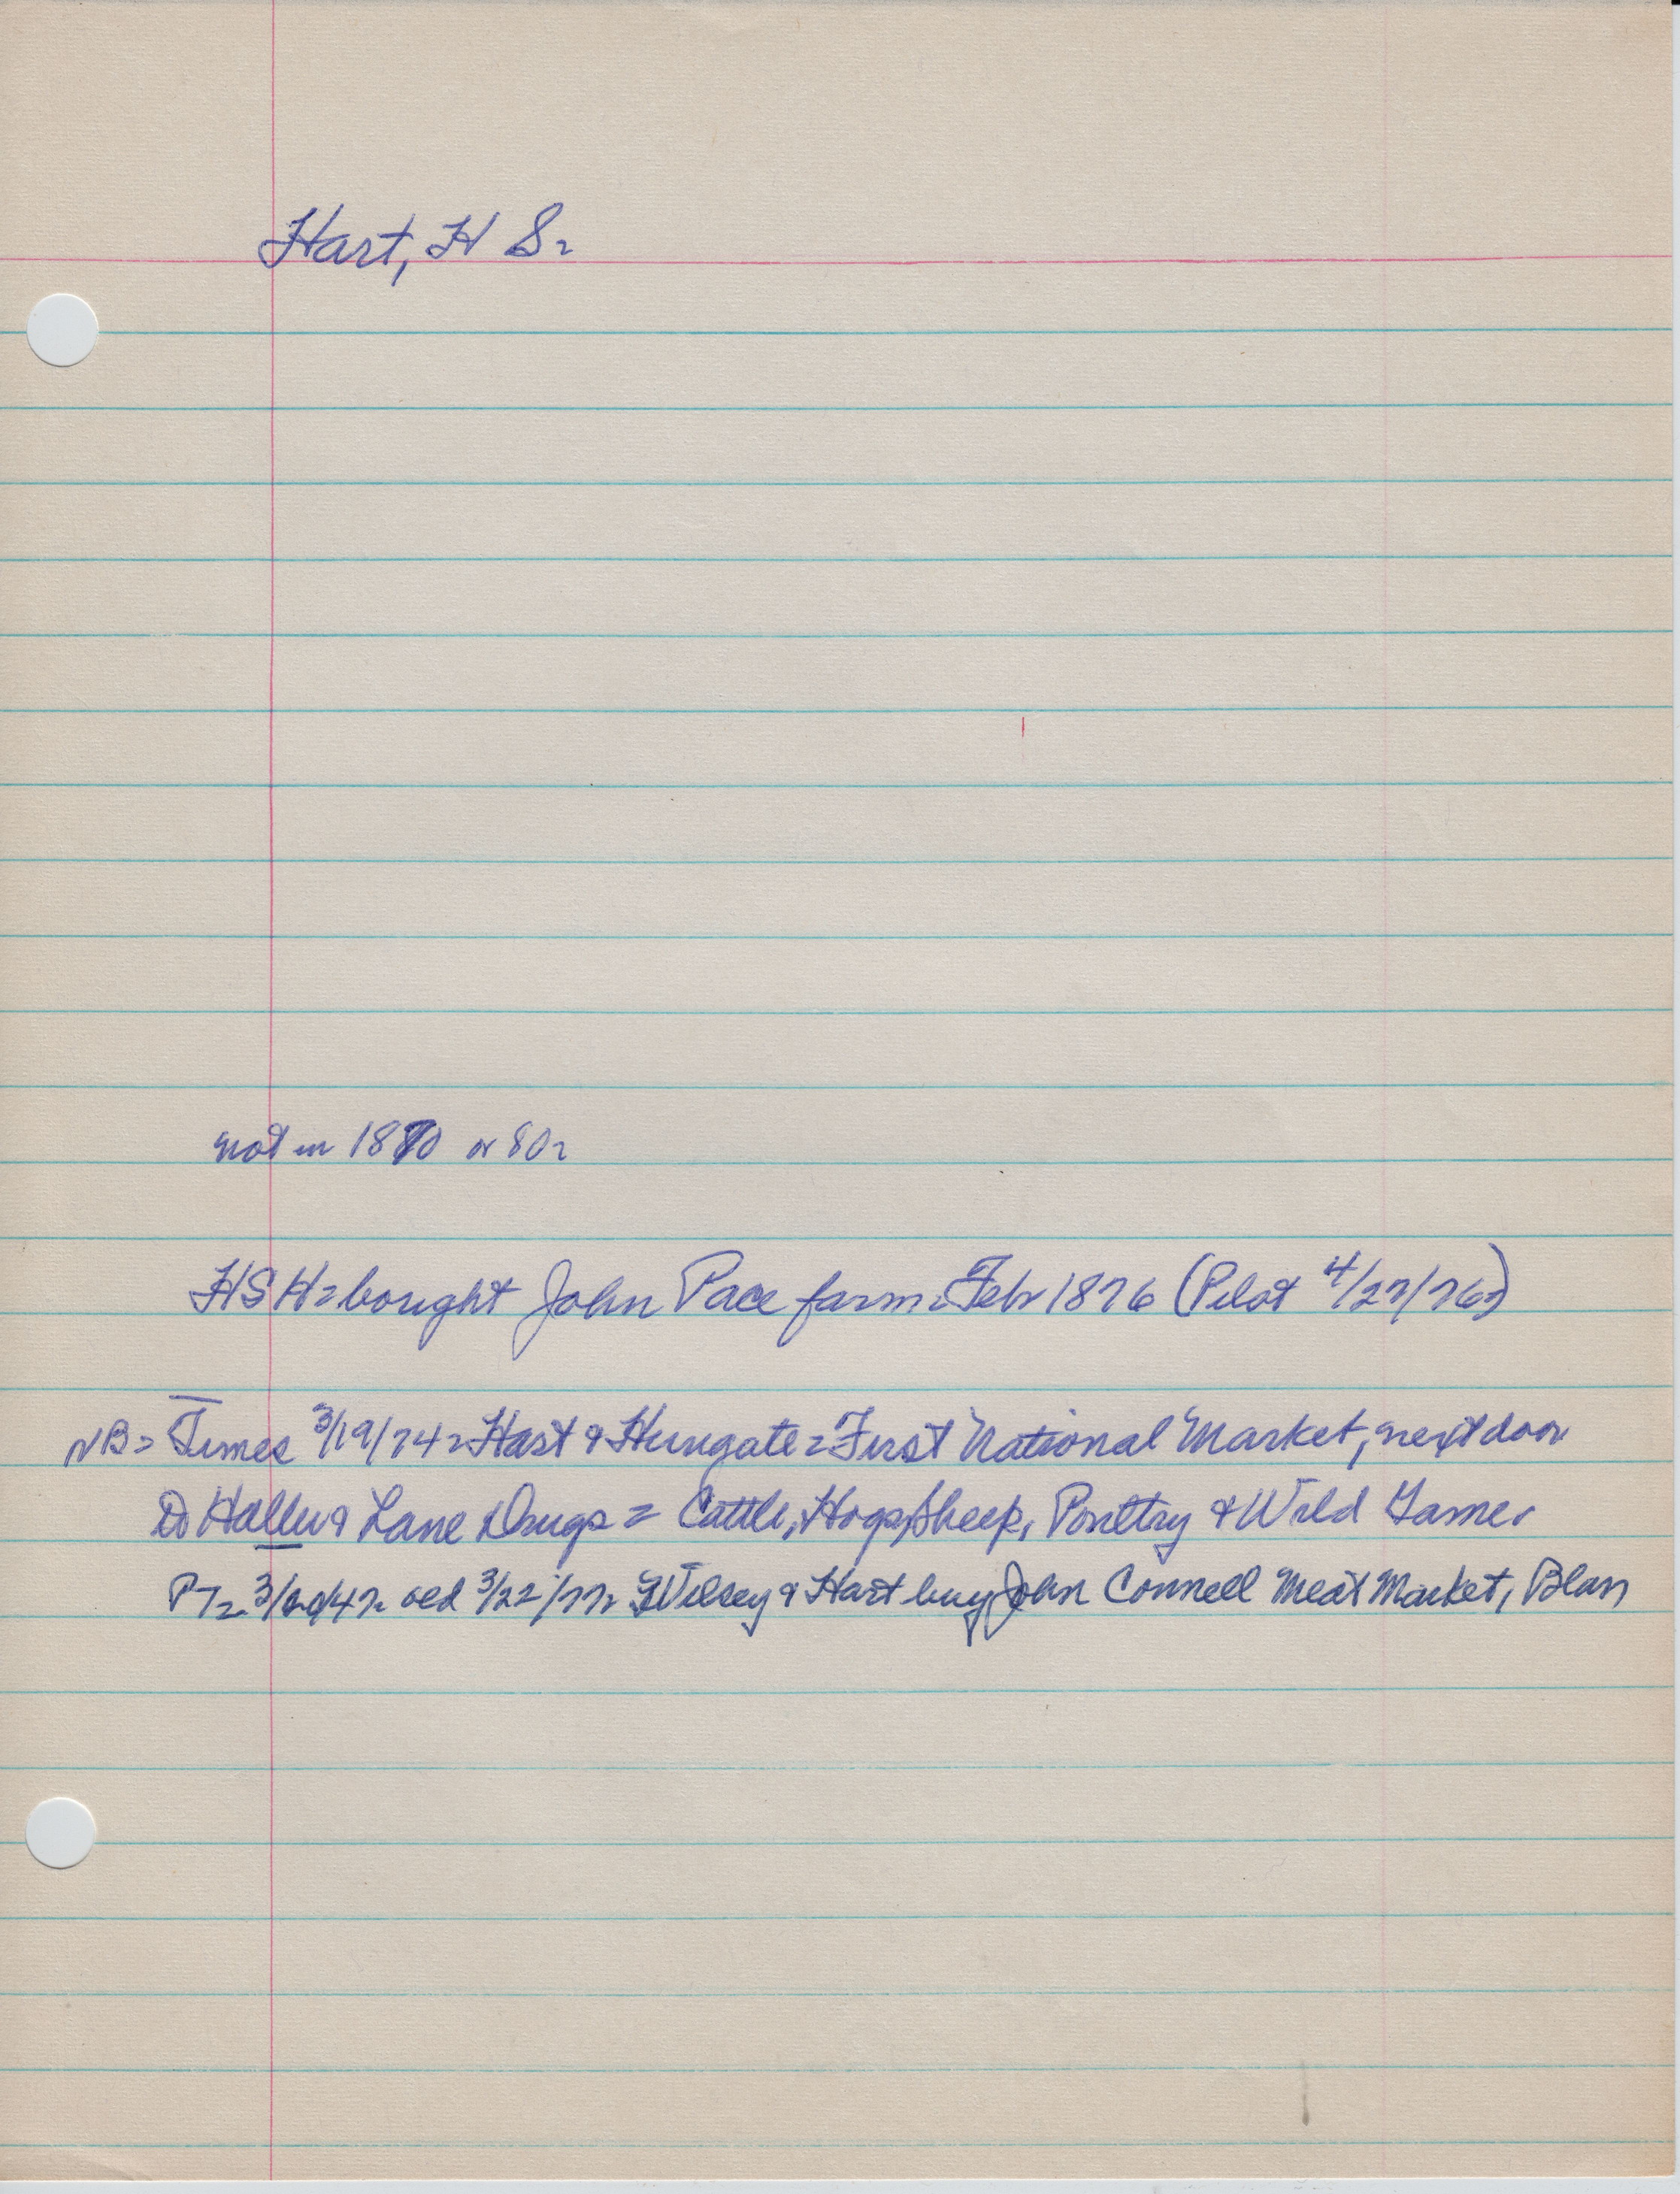 Hart, H S.
not in 1870 or 80.
HSH = bought John Pace farm. Feb 1876 (Pilot 4/27/76)
NB = Times 3/19/74 = Hart & Hungate = First National Market, next door
to Haller & Lane Drugs = Cattle, Hogs, Sheep, Poultry & Wild Game.
PT = old 3/22/77. Wilsey & Hart buy John Connell Meat Market, Blan